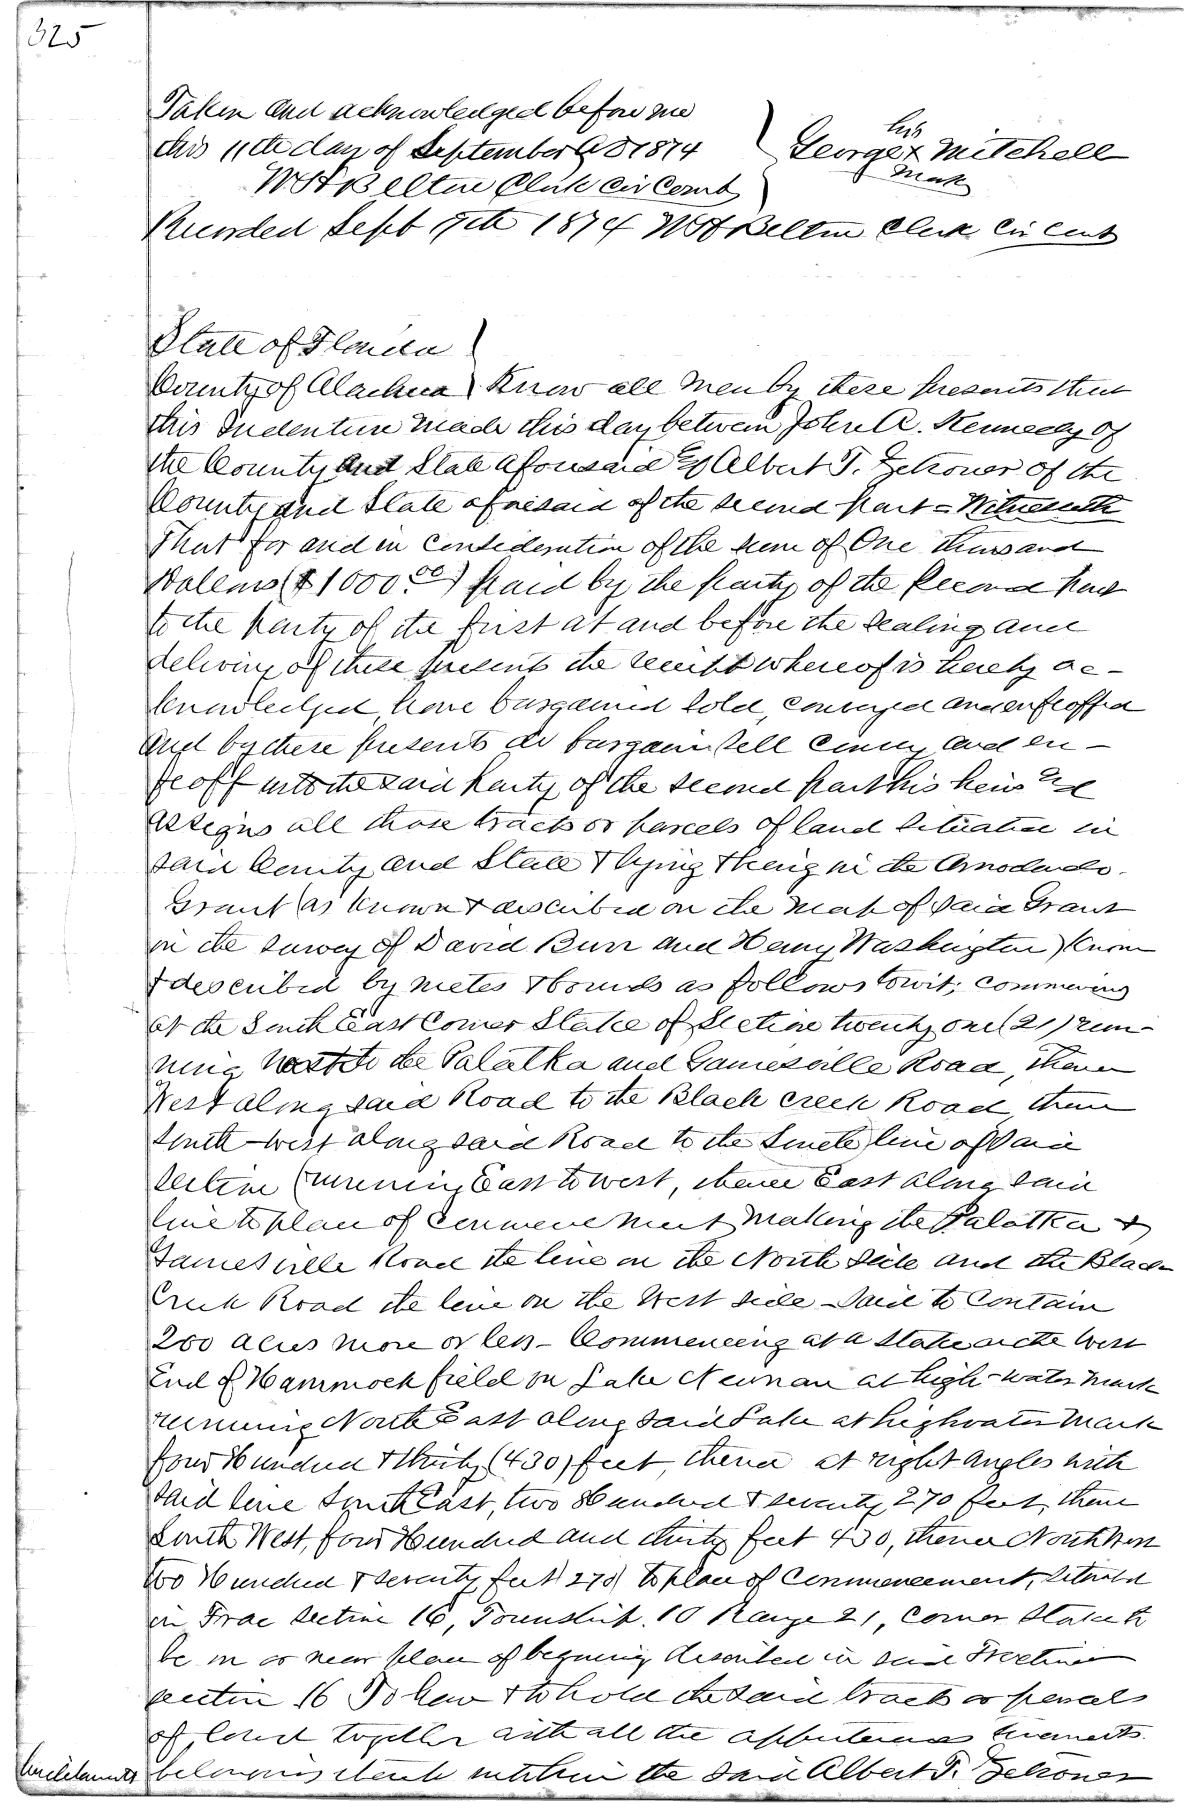 325
Taken and acknowledged before me
this 11th day of September AD 1874
his
George x Mitchell
mark
W H Belton Clerk Cir Court
Recorded Sept 17th 1874 W H Belton Clerk Cir Court
State of Florida
County of Alachua } Know all men by these presents that
this Indenture made this day between John A. Kennedy of
the County and State aforesaid & Albert T. Zetrouer of the
County and State aforesaid of the second part = Witnesseth
That for and in consideration of the sum of One thousand
Dollars ($1000.00) paid by the party of the Second part
to the party of the first at and before the sealing and
delivery of these presents the receipt whereof is hereby ac-
knowledged, have bargained sold, conveyed and enfeoffed
and by these presents do bargain sell convey and en-
feoff unto the said party of the second part his heirs and
assigns all those tracts or parcels of land situated in
said County and State & lying & being in the Arredondo
Grant (as known & described on the map of said Grant
in the survey of David Burr and Henry Washington) known
& described by metes & bounds as follows towit; commencing
at the South East Corner Stake of Section twenty one (21) run-
ning West to the Palatka and Gainesville Road, thence
West along said Road to the Black Creek Road, thence
South-west along said Road to the South line of said
section (running East to west, thence East along said
line to place of commencement, making the Palatka &
Gainesville Road the line on the North side and the Black
Creek Road the line on the West side - Said to contain
200 acres more or less - Commencing at a stake at the West
End of Hammock field on Lake Newnan at high-water mark
running North East along said Lake at highwater mark
four Hundred & thirty (430) feet, thence at right angles with
said line South East, two Hundred & seventy 270 feet, thence
South West, four Hundred and thirty feet 430, thence North West
two Hundred & seventy feet (270) to place of commencement, situated
in Frac section 16, Township. 10 Range 21, corner Stake to
be in or near place of beginning described in said Fractional
section 16 To have & to hold the said tracts or parcels
of land together with all the appurtenances tenements
hereditaments belonging thereto unto him the said Albert T. Zetrouer